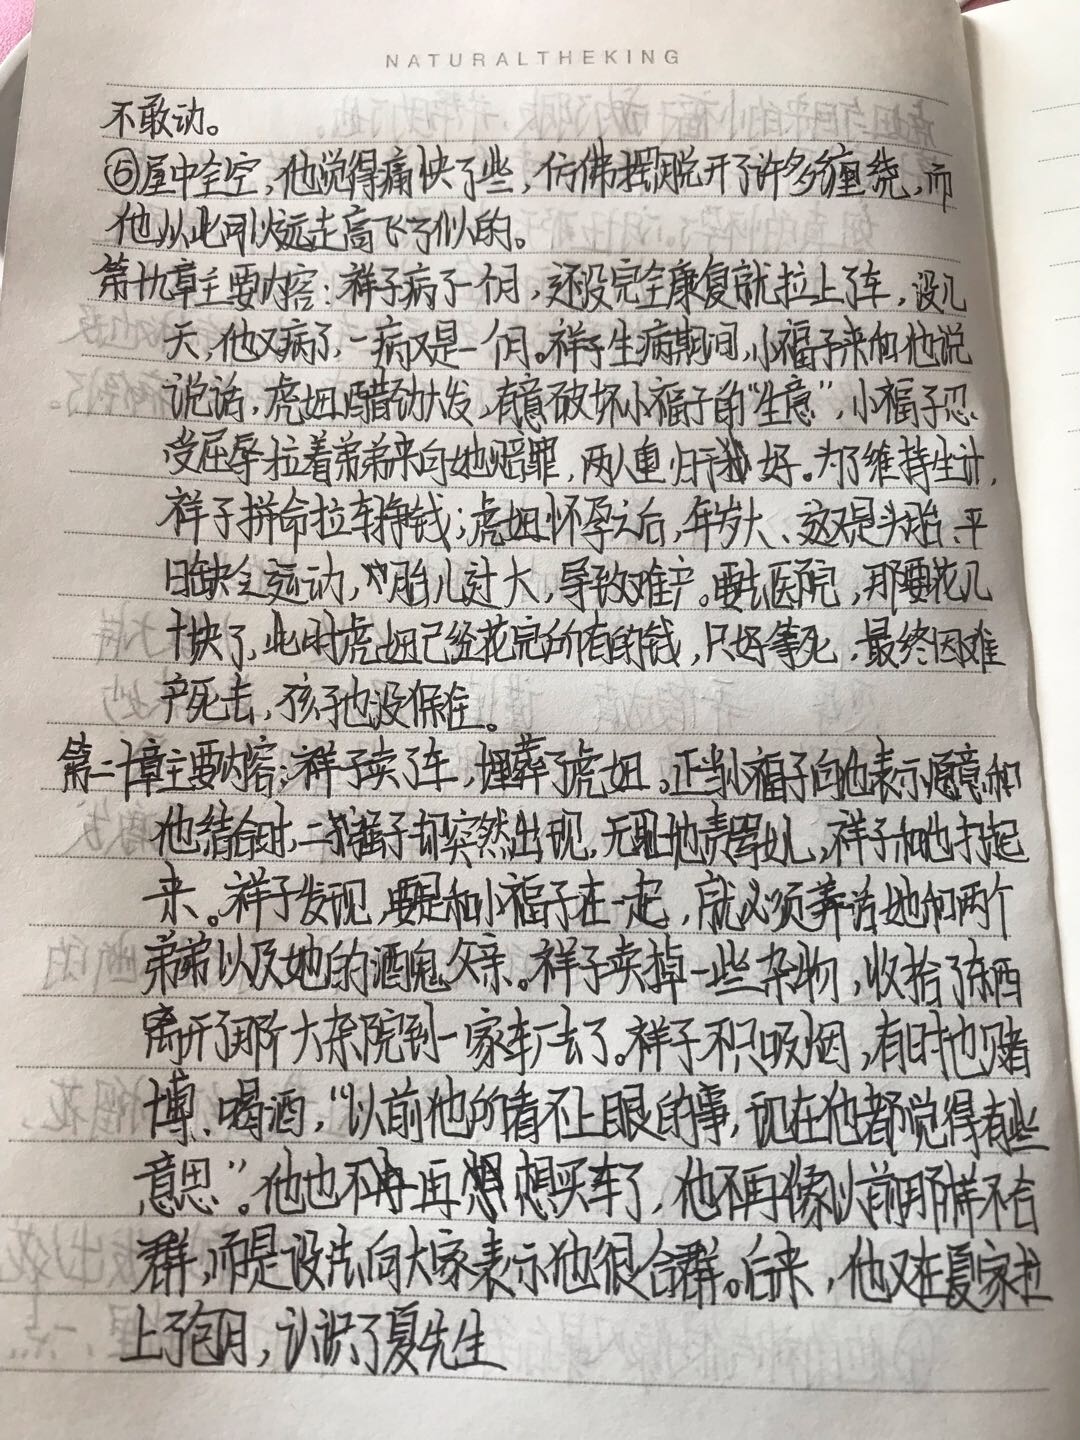 NATURALTHEKING
不敢动。
⑥屋中全空，他觉得痛快了些，仿佛摆脱开了许多缠绕，而
他从此可以远走高飞了似的。
第十九章主要内容：祥子病了一个月，还没完全康复就拉上了车，没几
天，他又病了，一病又是一个月。祥子生病期间，小福子来和他说
说话，虎妞醋劲大发，有意破坏小福子的“生意”，小福子忍
受屈辱拉着弟弟来向她赔罪，两人重归于好。为了维持生计，
祥子拼命拉车挣钱；虎妞怀孕之后，年岁大、这又是头胎、平
日缺乏运动，胎儿过大，导致难产。要去医院，那要花几
十块了，此时虎妞已经花完所有的钱，只好等死，最终因难
产死去，孩子也没保住。
第二十章主要内容：祥子卖了车，埋葬了虎妞。正当小福子向他表示愿意和
他结合时，二强子却突然出现，无耻地责骂女儿，祥子和他打起
来。祥子发现，要是和小福子在一起，就必须养活她和两个
弟弟以及她的酒鬼父亲。祥子卖掉一些杂物，收拾了东西
离开了那个大杂院到一家车厂去了。祥子不只吸烟，有时也赌
博、喝酒，“以前他所看不上眼的事，现在他都觉得有些
意思”。他也不再想买车了，他不再像以前那样不合
群，而是设法向大家表示他很合群。后来，他又在夏家拉
上了包月，认识了夏先生